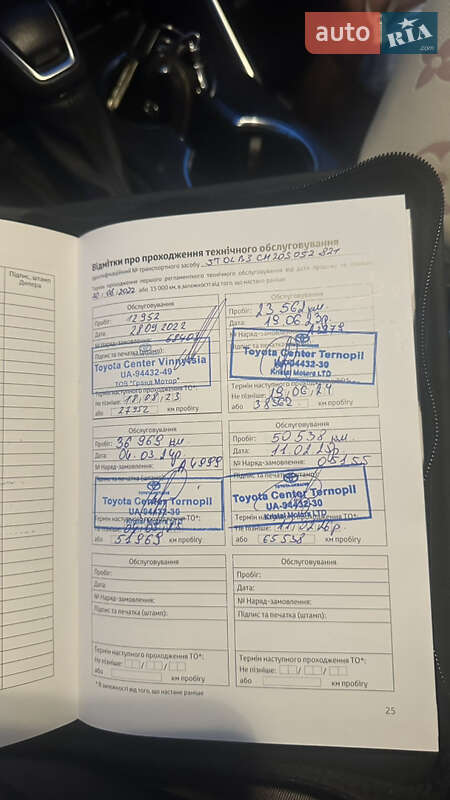 auto RIA.com
Підпис, штамп
Дилера
Відмітки про проходження технічного обслуговування
Ідентифікаційний № транспортного засобу
Термін проходження першого регламентного технічного обслуговування від дати продажу не пізніше:
або 15 000 км, в залежності від того, що настане раніше
Обслуговування
Пробіг: 12952
Дата: 28.09.2022
№ Наряд-замовлення:
Підпис та печатка (штамп):
Toyota Center Vinnytsia
UA-94432-49
ТОВ "Гранд Мотор"
Термін наступного проходження ТО*:
Не пізніше: 18/08/23
або 27952 км пробігу
Обслуговування
Пробіг: 23 562 км.
Дата: 19.06.23р.
№ Наряд-замовлення:
Toyota Center Ternopil
UA-94432-30
Kristal Motors LTD
Термін наступного проходження ТО*:
Не пізніше: 19/06/24
або 38562 км пробігу
Обслуговування
Пробіг: 36 969 км
Дата: 04.03.24р.
№ Наряд-замовлення:
Toyota Center Ternopil
UA-94432-30
Kristal Motors LTD
або 51969 км пробігу
Обслуговування
Пробіг: 50 538 км.
Дата: 11.02.25р.
№ Наряд-замовлення: 05155
Toyota Center Ternopil
UA-94432-30
Kristal Motors LTD
Не пізніше: 11/02/26р.
або 65538 км пробігу
Обслуговування
Пробіг:
Дата:
№ Наряд-замовлення:
Підпис та печатка (штамп):
Термін наступного проходження ТО*:
Не пізніше:
або км пробігу
Обслуговування
Пробіг:
Дата:
№ Наряд-замовлення:
Підпис та печатка (штамп):
Термін наступного проходження ТО*:
Не пізніше:
або км пробігу
* В залежності від того, що настане раніше
25